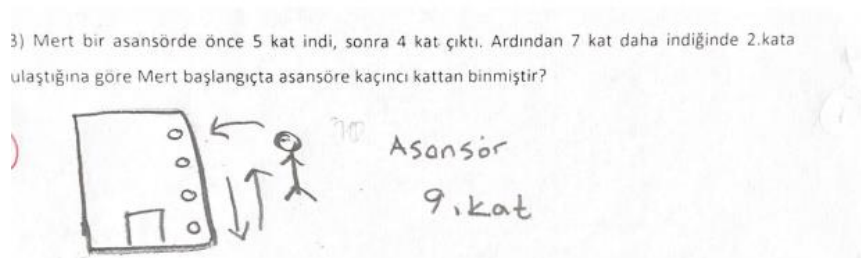 3) Mert bir asansörde önce 5 kat indi, sonra 4 kat çıktı. Ardından 7 kat daha indiğinde 2.kata
ulaştığına göre Mert başlangıçta asansöre kaçıncı kattan binmiştir?
Asansör
9.kat